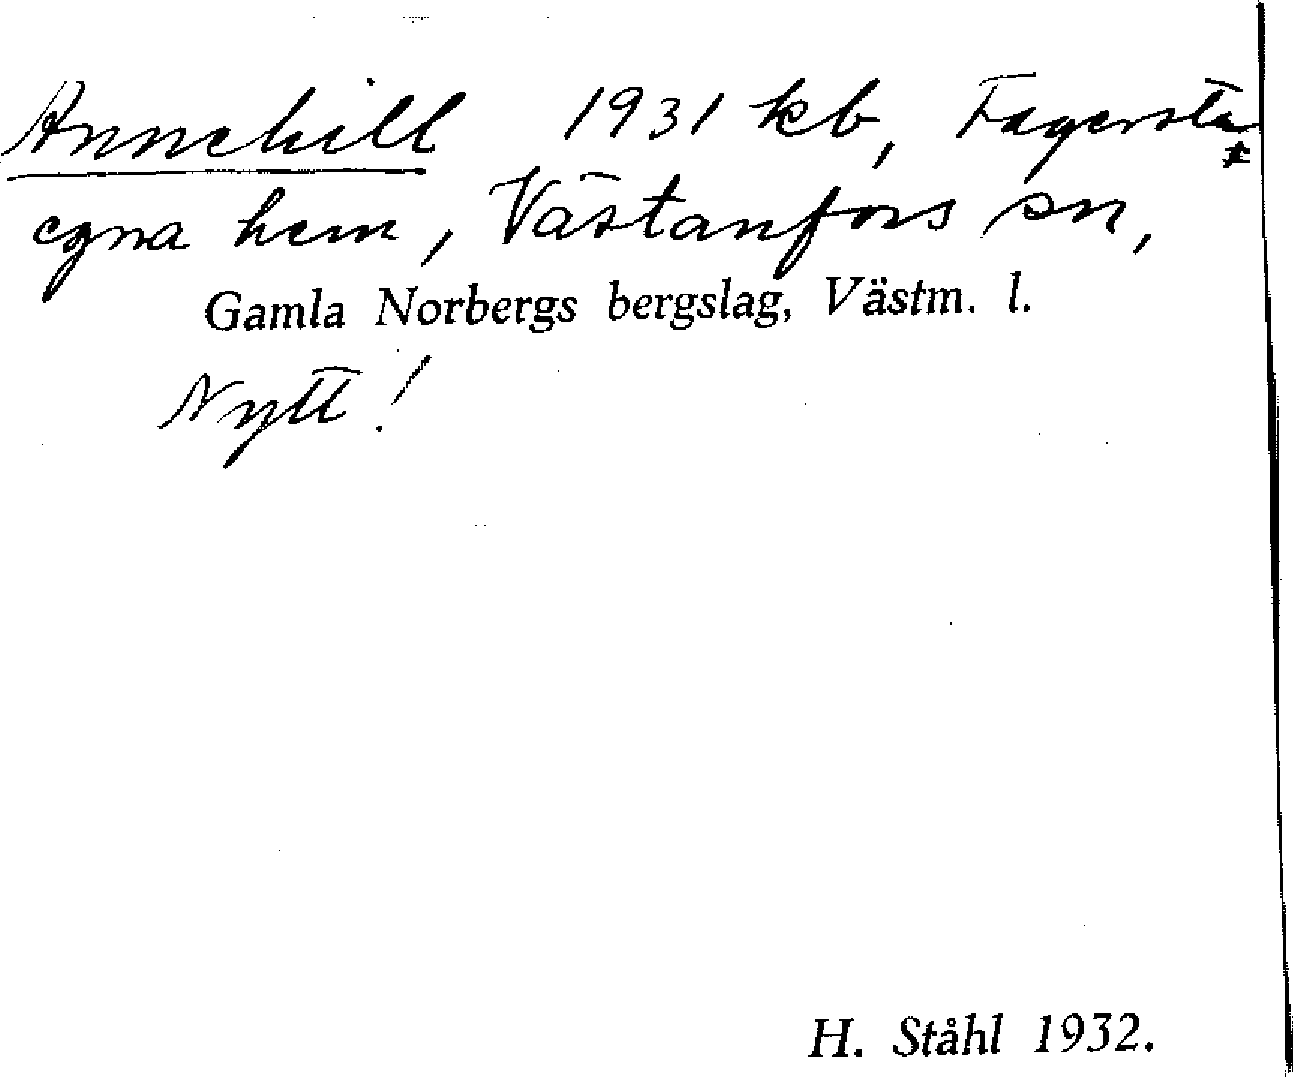 Annehill 1931 kb, Fagersta
egna hem, Västanfors sn,
Gamla Norbergs bergslag, Västm. l.
Nytt!
H. Ståhl 1932.